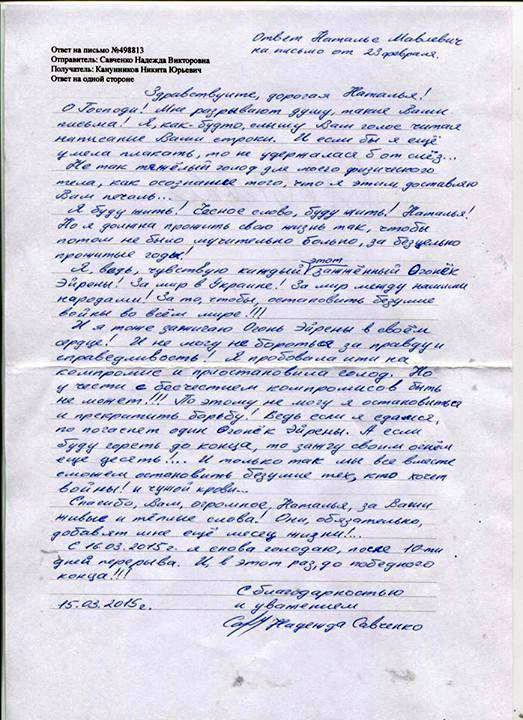 Ответ Наталье Мавлевич
на письмо от 23 февраля.
Ответ на письмо №498813
Отправитель: Савченко Надежда Викторовна
Получатель: Канунников Никита Юрьевич
Ответ на одной стороне
Здравствуйте, дорогая Наталья!
О Господи! Мне разрывают душу, такие Ваши
письма! Я, как-будто, слышу Ваш голос читая
написаные Ваши строки. И если бы я ещё
умела плакать, то не удержалася б от слёз...
Не так тяжёлый голод для моего физического
тела, как осознание того, что я этим доставляю
Вам печаль...
Я буду жить! Чесное слово, буду жить! Наталья!
Но я должна прожить свою жизнь так, чтобы
потом не было мучительно больно, за безцельно
прожитые годы!
Я, ведь, чувствую каждый этот зажжённый Огонёк
Эйрены! За мир в Украине! За мир между нашими
народами! За то, чтобы, остановить безумие
войны во всём мире!!!
И я тоже зажигаю Огонь Эйрены в своём
сердце! И не могу не бороться за правду и
справедливость! Я пробовала идти на
кемпромис и приостановила голод. Но
у чести с бесчестием компромисов быть
не может!!! По этому не могу я остановиться
и прекратить борьбу! Ведь если я сдамся,
по погаснет один Огонёк Эйрены. А если
буду гореть до конца, то зажгу своим огнём
еще десять!... И только так мы все вместе
сможем остановить безумие тех, кто хочет
войны! и чужой крови...
Спасибо, Вам, огромное, Наталья, за Ваши
живые и тёплые слова! Они, обязательно,
добавят мне ещё месяц жизни!...
С 16.03.2015г. я снова голодаю, после 10-ти
дней перерыва. И, в этот раз, до победного
конца!!!
С благодарностью
15.03.2015г. и уважением
Надежда Савченко